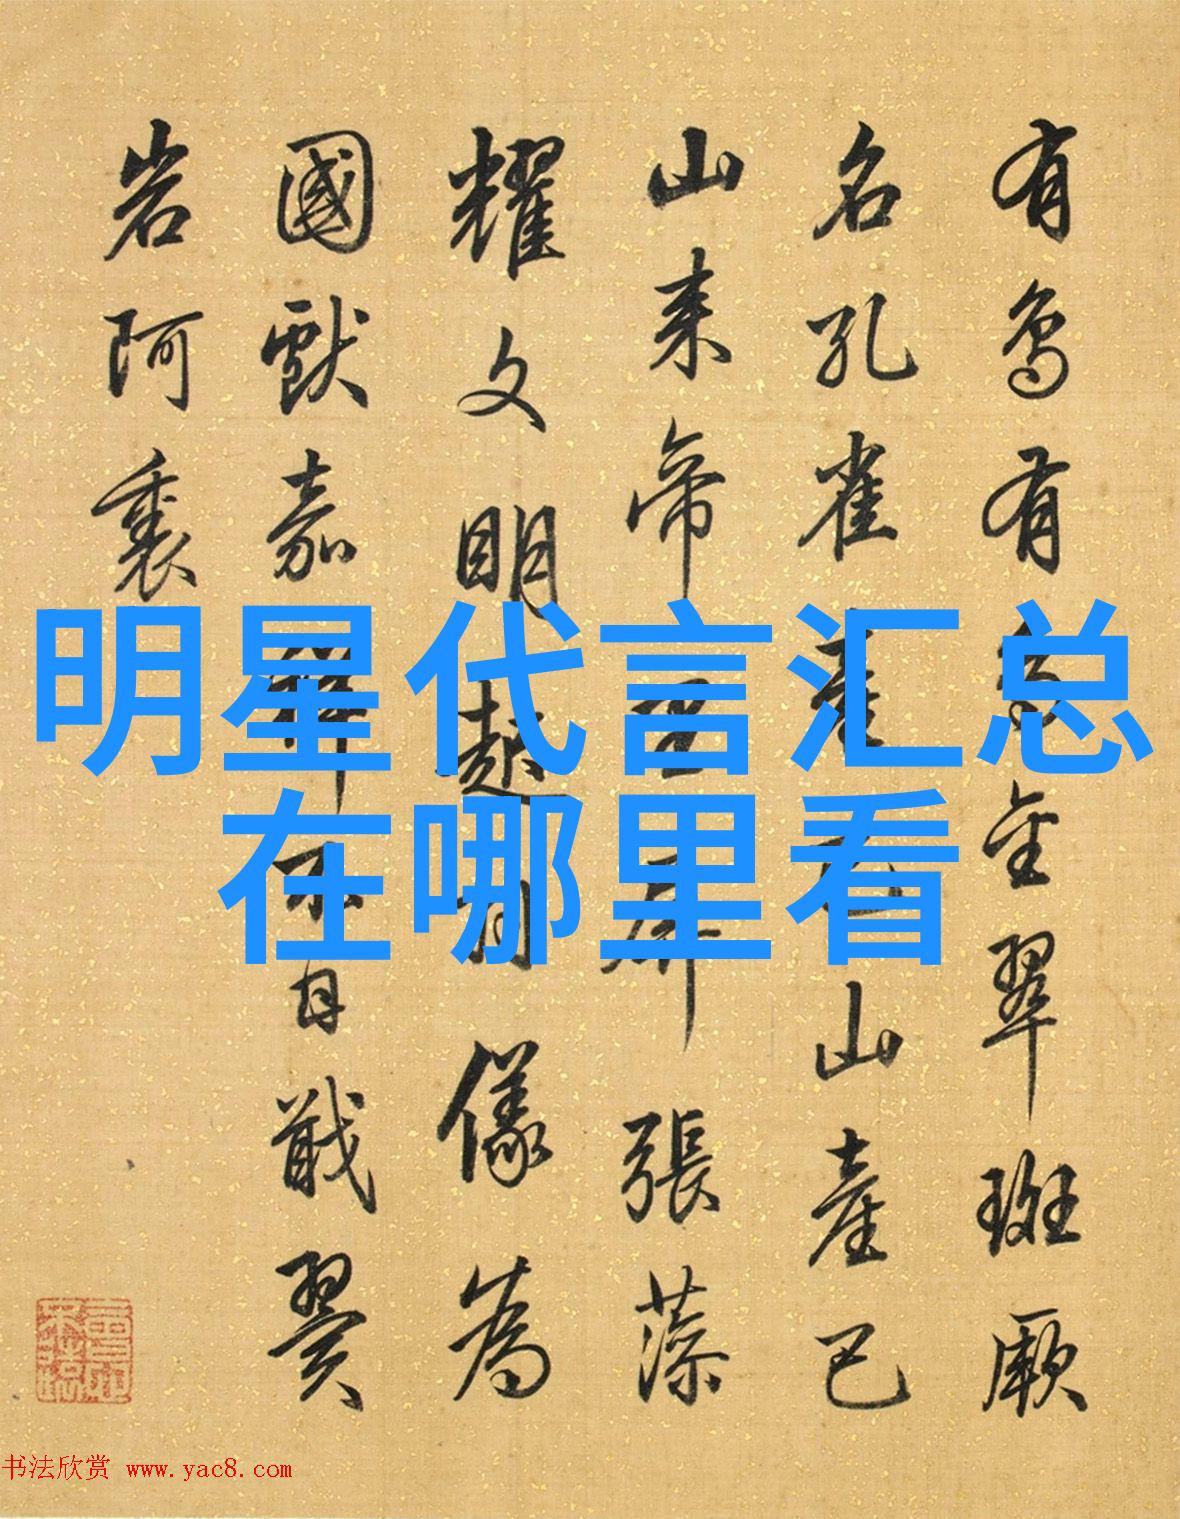 明星代言汇总
在哪里看
有鳥有金翠斑厥
名孔雀山產已
山来帝張藻
耀文明儀為
國獻嘉自戢翼
岩阿裏
书法欣赏 www.yac8.com